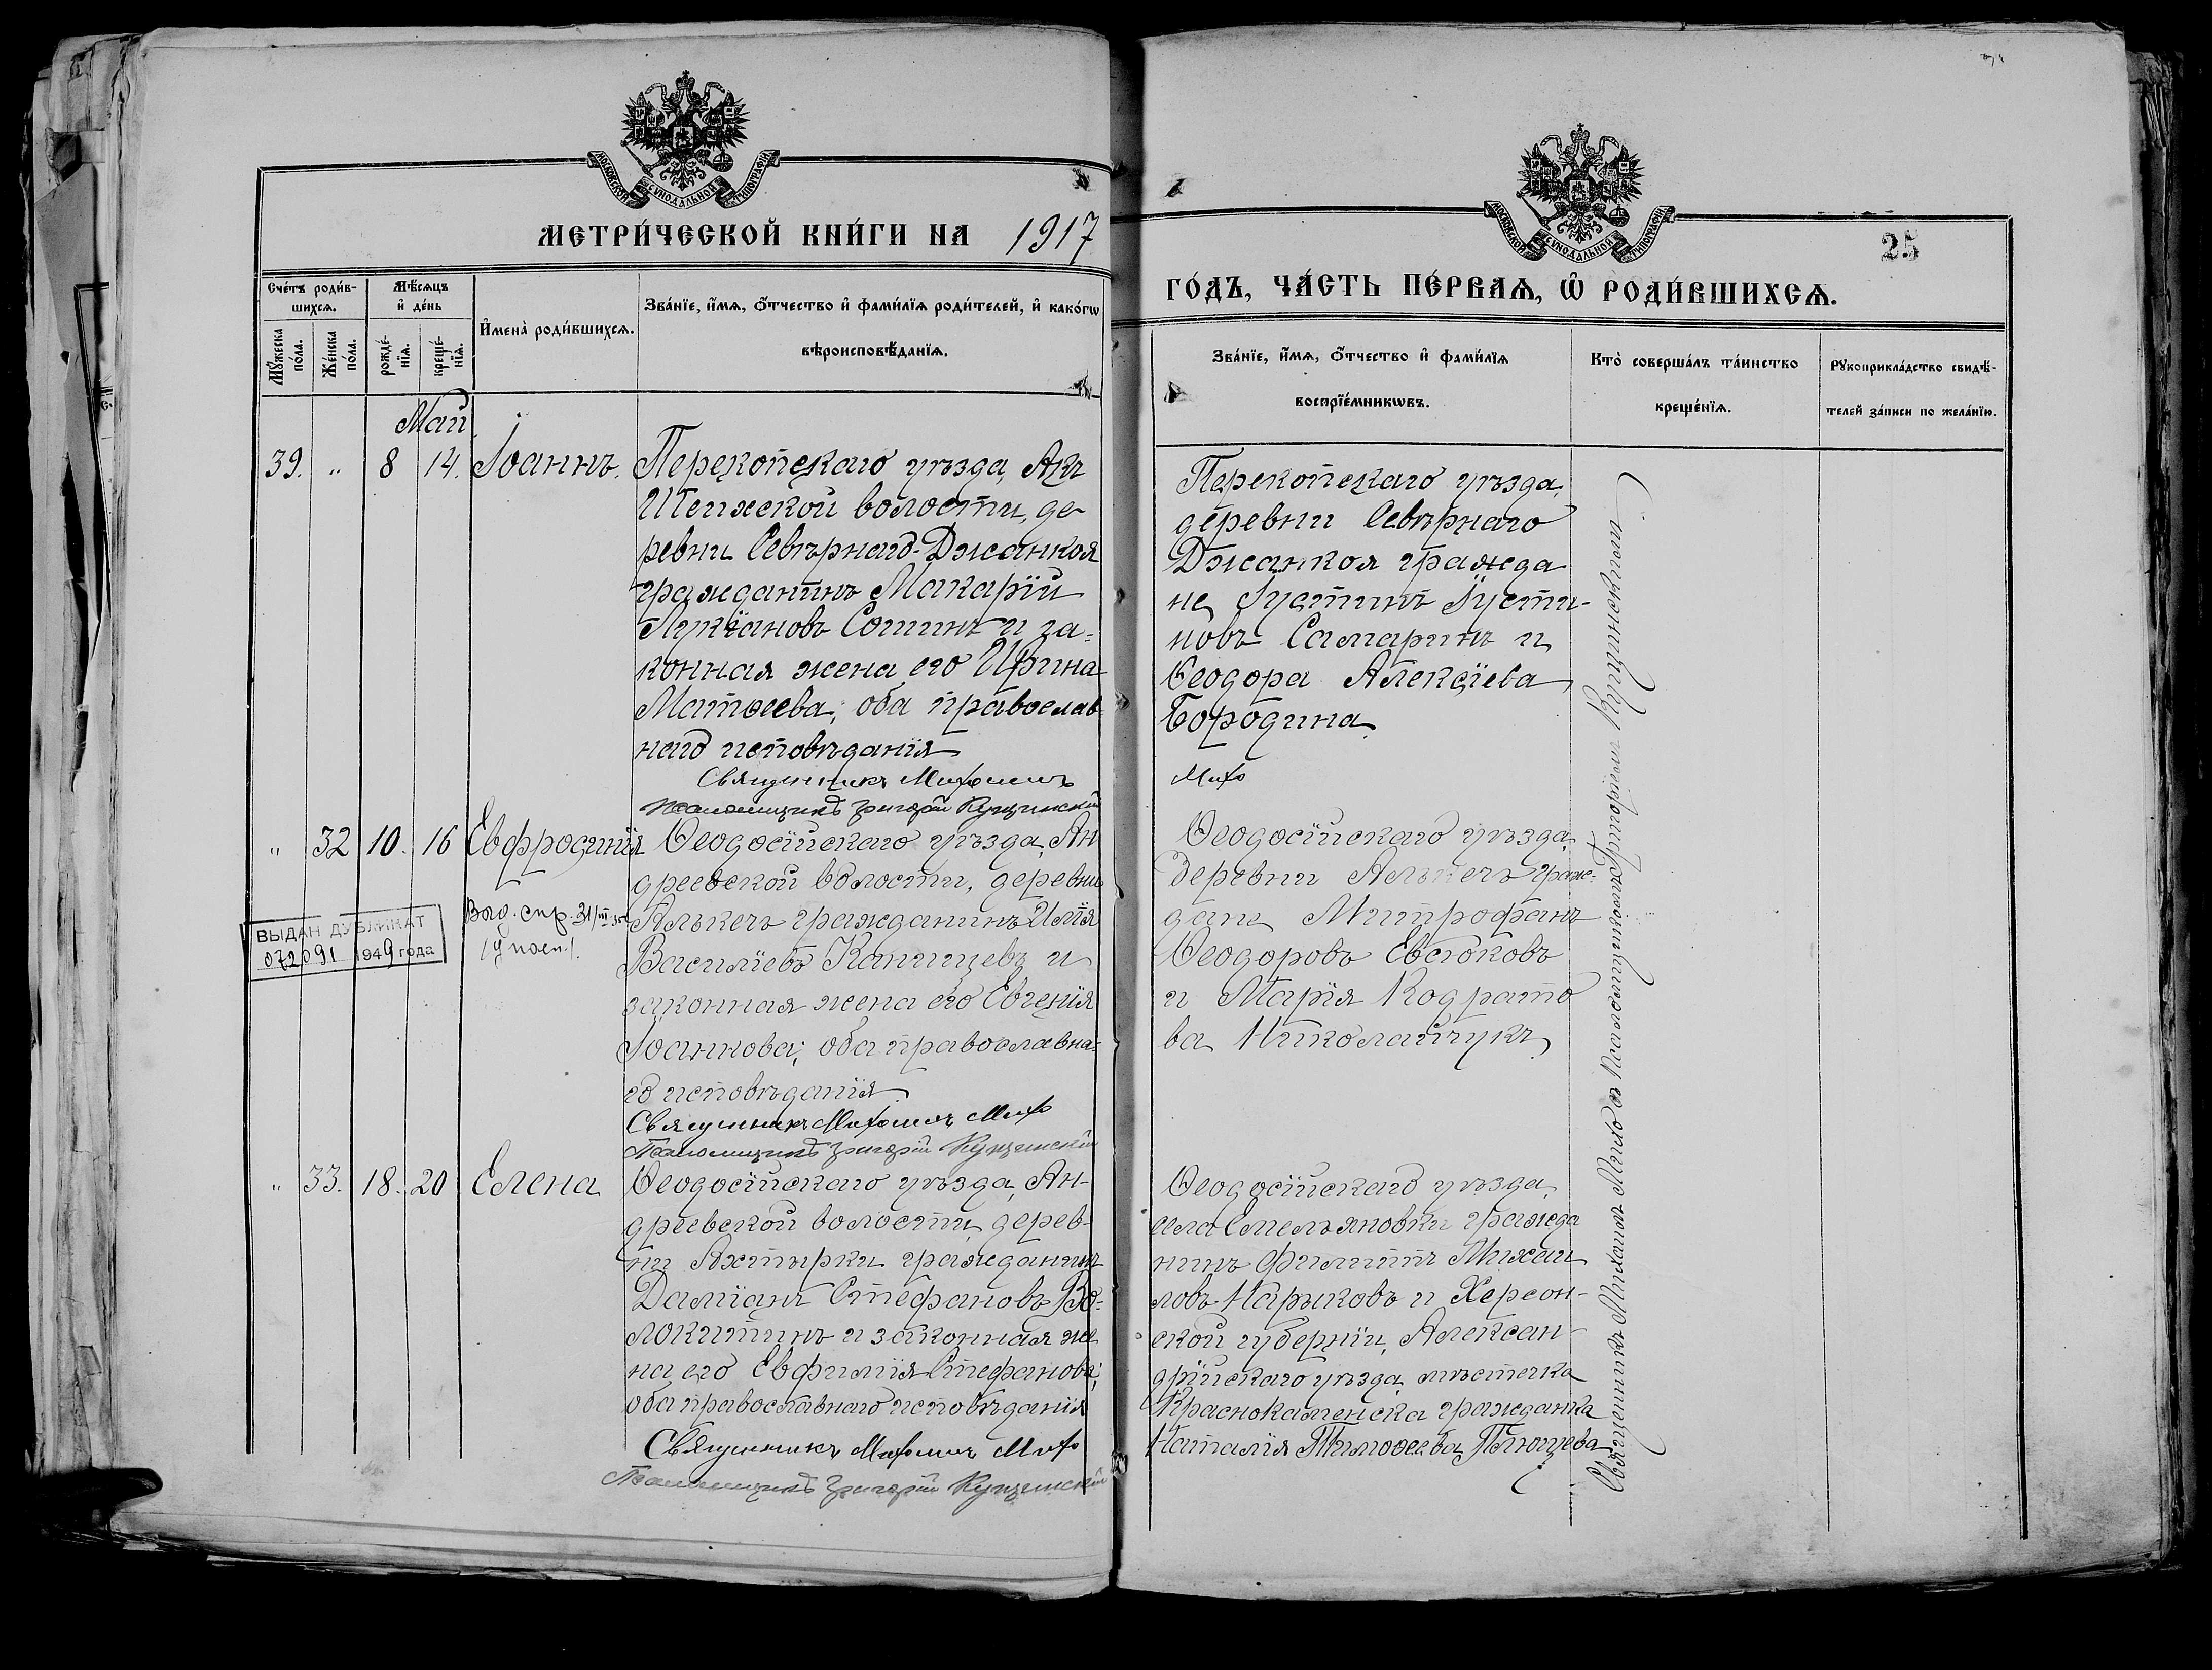 МОСКОВСКОЙ СѴНОДАЛЬНОЙ ТИПОГРАФІИ
МЕТРИ́ЧЕСКОЙ КНИ́ГИ НА 1917
Сче́тъ роди́в-
шихсѧ.
Мꙋ́жеска
по́ла.
Же́нска
по́ла.
Мѣ́сѧцъ
и҆ де́нь
рожде́-
нїѧ.
креще́-
нїѧ.
И҆мена̀ роди́вшихсѧ.
Зва́нїе, и҆́мѧ, ѻ҆́тчество и҆ фами́лїѧ роди́телей, и҆ како́гѡ
вѣроисповѣ́данїѧ.
Май
39. „ 8 14. Іоаннъ.
Перекопскаго уѣзда, Акъ
Шеихской волости, де-
ревни Сѣвѣрнаго-Джанкоя
гражданинъ Макарій
Лукіановъ Сошинъ и за-
конная жена его Ирина
Матѳеева, оба православ-
наго исповѣданія
Священникъ Михаилъ
Псаломщикъ Григорій Кущинскій
„ 32 10. 16 Евфросинія
Ѳеодосійскаго уѣзда, Ан
дреевской волости, деревни
Алькечъ гражданинъ Илія
Василіевъ Канищевъ и
законная жена его Евгенія
Іоаннова; оба православна-
го исповѣданія
Выд. спр. 31/III
ВЫДАН ДУБЛИКАТ
072091 1949 года
Священникъ Михаилъ Михо
Псаломщикъ Григорій Кущинскій
„ 33. 18. 20 Елена
Ѳеодосійскаго уѣзда, Ан-
дреевской волости, дерев-
ни Ахтырки гражданинъ
Даміанъ Стефановъ Во-
локитинъ и законная же
на его Евфимія Стефанова;
оба православнаго исповѣданія
Священникъ Михаилъ Михо
Псаломщикъ Григорій Кущинскій
МОСКОВСКОЙ СѴНОДАЛЬНОЙ ТИПОГРАФІИ
25
ГО́ДЪ, ЧА́СТЬ ПЕ́РВАѦ, Ѡ҆ РОДИ́ВШИХСѦ.
Зва́нїе, и҆́мѧ, ѻ҆́тчество и҆ фами́лїѧ
воспрїе́мникѡвъ.
Кто̀ соверша́лъ та́инство
креще́нїѧ.
Рꙋкоприкла́дство свидѣ́-
телей за́писи по жела́нїю.
Перекопскаго уѣзда,
деревни Сѣвѣрнаго
Джанкоя гражда
не Іустинъ Іусти-
новъ Самаринъ и
Ѳеодора Алексіева
Бородина
Михо
Ѳеодосійскаго уѣзда,
деревни Алькечъ граж-
дане Митрофанъ
Ѳеодоровъ Евсюковъ
и Марія Кодрато
ва Николайчукъ
Ѳеодосійскаго уѣзда,
села Емельяновки гражда
нинъ Филиппъ Михаи
ловъ Нарыковъ и Херсон-
ской губерніи, Алексан-
дрійскаго уѣзда, мѣстечка
Краснокаменска гражданка
Наталія Тимоѳеева
Священникъ Михаилъ Михо съ Псаломщикомъ Григоріемъ Кущинскимъ